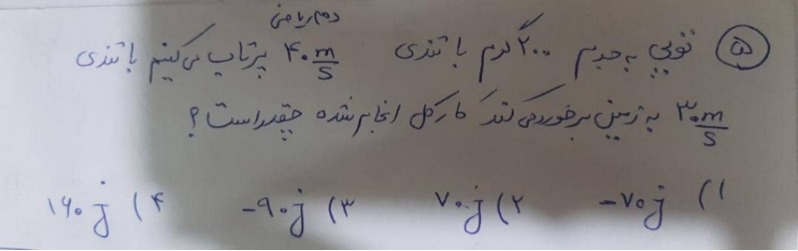 دهم ریاضی
۵ توپی به جرم ۲۰۰ گرم با تندی ۴۰ m/s پرتاب می‌کنیم با تندی
۳۰ m/s به زمین برخورد می‌کند کار کل انجام شده چقدر است؟
۱) -۷۰ j ۲) ۷۰ j ۳) -۹۰ j ۴) ۱۶۰ j